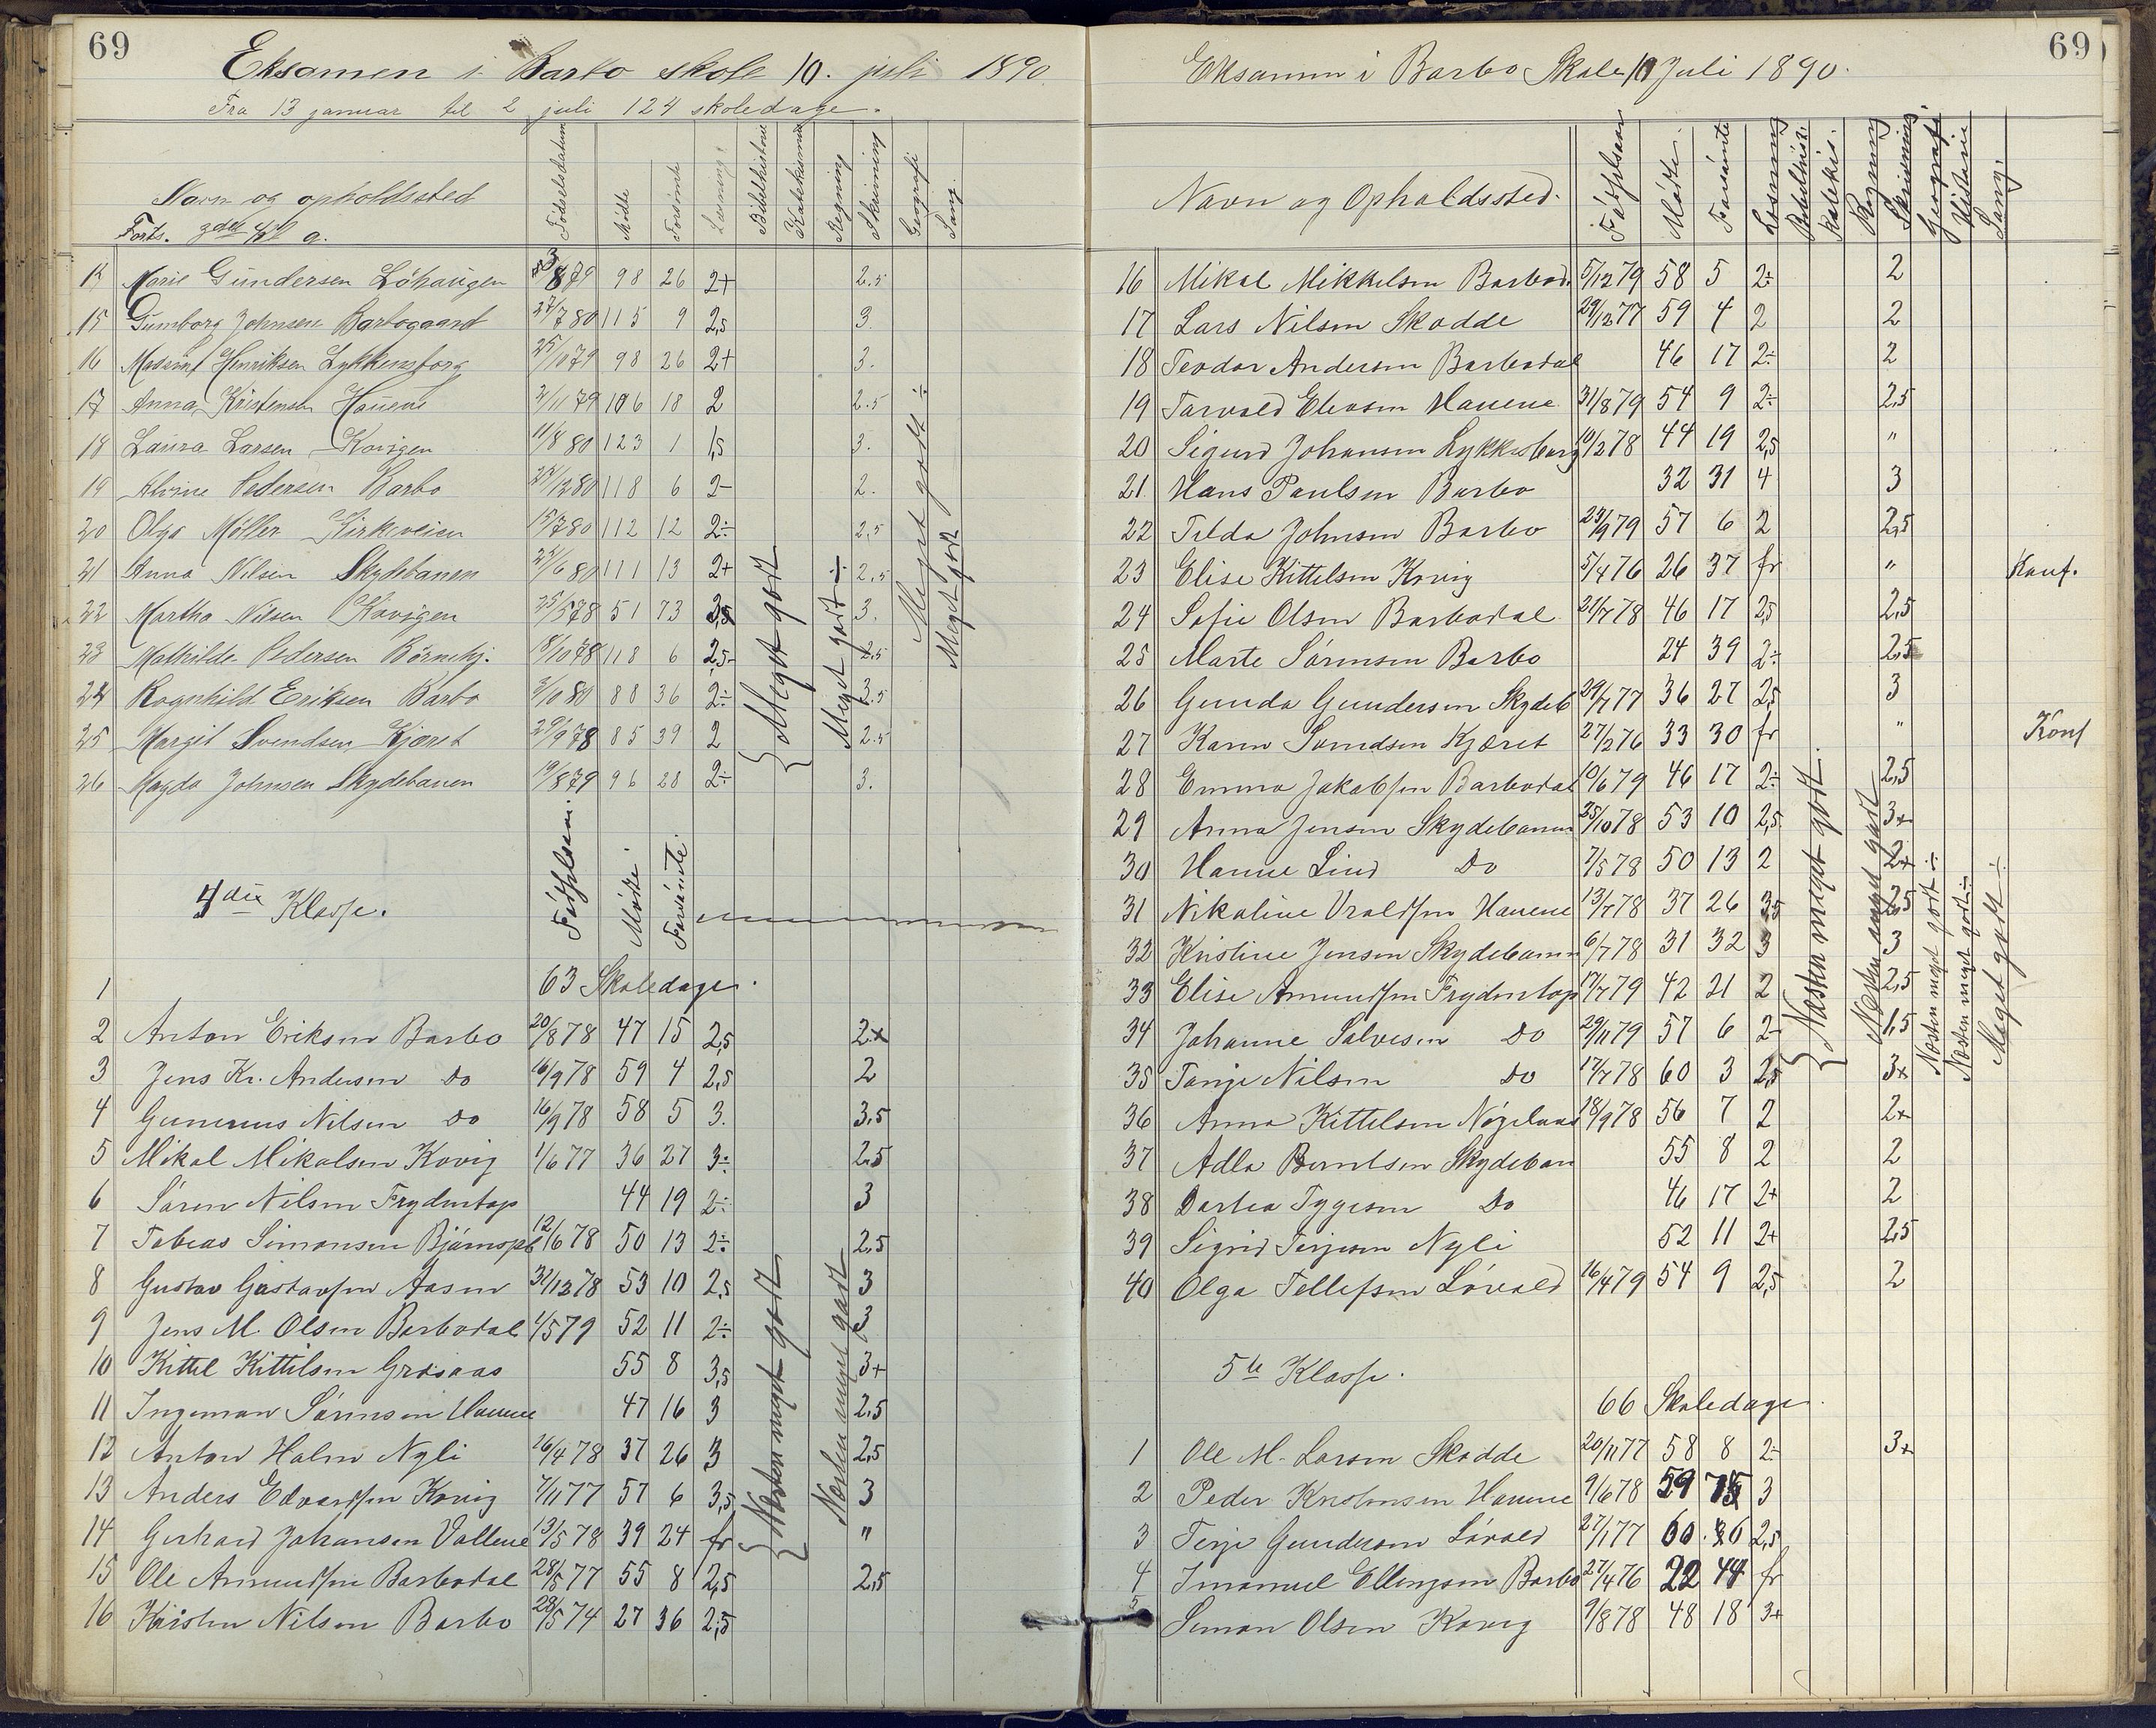 69
Eksamen i Barbo skole 10. juli 1890
Fra 13 januar til 2 juli 124 skoledage.
Navn og opholdssted Födselsdatum Mödte Forsömte Læsning Bibelhistorie Katekismus Regning Skrivning Geografi Sang.
Forts. 3die kl a.
14 Marie Gundersen Löhaugen 8 79 98 26 2+ 2.5
15 Gumborg Johnsen Barbogaard 27/7 80 115 9 2,5 3.
16 Henriksen Lykkensborg 25/10 79 98 26 2+ 3.
17 Anna Kristensen Hauene 2/11 79 106 18 2 2.5
18 Laura Larsen Kovigen 11/8 80 123 1 1,5 3.
19 Alvine Pedersen Barbo 12 80 118 6 2- 2.
20 Olga Möller Kirkeveien 15/7 80 112 12 2÷ 2,5
21 Anna Nilsen Skydebanen 25/6 80 111 13 2+ 2,5
22 Martha Nilsen Kovigen 25/5 78 51 73 3,5 3.
23 Mathilde Pedersen Börnehj. 18/10 78 118 6 2,5- 2.5
24 Ragnhild Eriksen Barbo 3/10 80 88 36 2÷ 3.5
25 Margit Svendsen Kjæret 29/9 78 85 39 2 2.5
26 Magda Johnsen Skydebanen 19/8 79 96 28 2÷ 3.
Meget godt
Meget godt ÷
Meget godt ÷
Meget godt
4die Klasse. Födselsaar Mödte. Forsömte.
1 63 Skoledage.
2 Anton Eriksen Barbo 20/8 78 47 15 2,5 2+
3 Jens Kr. Andersen Do 16/9 78 59 4 2,5 2
4 Gunerius Nilsen Do 16/9 78 58 5 3. 3,5
5 Mikal Mikalsen Kovig 1/6 77 36 27 3÷ 2.5
6 Sören Nilsen Frydentop 44 19 2÷ 3
7 Tobias Simonsen 12/6 78 50 13 2÷ 2,5
8 Gustav Gustavsen Aasen 31/12 78 53 10 2,5 3
9 Jens M. Olsen Barbodal 1/5 79 52 11 2÷ 3
10 Kittel Kittilsen Græsaas 55 8 3,5 3+
11 Ingeman Sörensen Hauene 47 16 3 2,5
12 Anton Holm Nyli 26/4 78 37 26 3 2,5
13 Anders Edvardsen Kovig 7/11 77 57 6 3,5 3
14 Gerhard Johansen Vollene 13/5 78 39 24 fr "
15 Ole Amundsen Barbodal 28/5 77 55 8 2,5 2,5
16 Kristen Nilsen Barbo 28/5 74 27 36 2,5
Næsten meget godt
Næsten meget godt
69
Eksamen i Barbo Skole 10 Juli 1890.
Navn og Opholdssted. Födselsaar Mödte. Forsömte Læsning Bibelhist. Katekis. Regning Skrivning Geografi Historie Sang.
16 Mikal Mikkelsen Barbod. 5/12 79 58 5 2÷ 2
17 Lars Nilsen Skodde 29/12 77 59 4 2 2
18 Teodor Andersen Barbodal 46 17 2÷ 2
19 Torvald Elevsen Hauene 31/8 79 54 9 2÷ 2,5
20 Sigurd Johansen Lykkesborg 10/2 78 44 19 2,5 "
21 Hans Paulsen Barbo 32 31 4 3
22 Tilda Johnsen Barbo 23/9 79 57 6 2 2,5
23 Elise Kittelsen Kovig 5/4 76 26 37 fr " Konf.
24 Sofie Olsen Barbodal 21/7 78 46 17 2,5 2,5
25 Marte Sörensen Barbo 24 39 2÷ 2,5
26 Gunda Gundersen Skydeb 29/7 77 36 27 2,5 3
27 Karen Svendsen Kjæret 27/2 76 33 30 fr " Konf
28 Emma Jakobsen Barbodal 10/6 79 46 17 2÷ 2,5
29 Anna Jensen Skydebanen 25/10 78 53 10 2,5 3+
30 Hanne Lind Do 7/5 78 50 13 2 2+
31 Nikoline Vraldsen Hauene 13/7 78 37 26 3,5 2,5
32 Kristine Jensen Skydebanen 6/7 78 31 32 3 3
33 Elise Amundsen Frydentop 17/7 79 42 21 2 2,5
34 Johanne Salvesen Do 29/11 79 57 6 2÷ 1,5
35 Tonje Nilsen Do 17/7 78 60 3 2,5 3+
36 Anna Kittelsen 18/9 78 56 7 2 2+
37 Adla Berntsen Skydeban 55 8 2 2
38 Dortea Tygesen Do 46 17 2+ 2
39 Sigrid Terjesen Nyli 52 11 2+ 2,5
40 Olga Tellefsen Lövold 16/4 79 54 9 2,5 2
Næsten meget godt.
Næsten meget godt
Næsten meget godt ÷
Næsten meget godt ÷
Meget godt ÷
5te Klasse.
66 Skoledage.
1 Ole M. Larsen Skodde 20/11 77 58 8 2÷ 3+
2 Peder Kristensen Hauene 9/6 78 59 3
3 Terje Gundersen Lövold 27/1 77 60 6 2,5
4 Imanuel Ellingsen Barbo 27/4 76 22 44 fr
5 Simon Olsen Kovig 9/8 78 48 18 3+